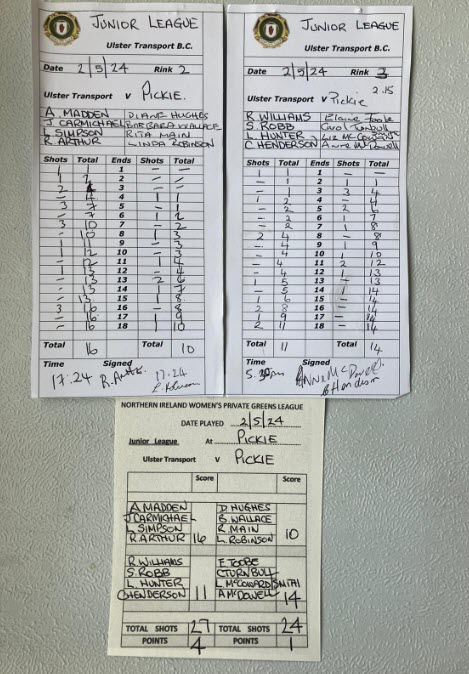 JUNIOR LEAGUE
Ulster Transport B.C.
Date 2/5/24 Rink 2
Ulster Transport V PICKIE.
A. MADDEN DIANE HUGHES
J CARMICHAEL BARBARA WALLACE
L SIMPSON RITA MAIN
R ARTHUR LINDA ROBINSON
Shots Total Ends Shots Total
1 1 1 - -
2 - -
3 - -
4 1 1
5
- 7 6 1 2
3 10 7 - 2
- 10 8 1 3
1 11 9 - 3
1 12 10 - 3
- 12 11 - 4
1 13 12 - 4
- 13 13 2 6
- 13 14 1 7
- 13 15 1 8
3 16 16 - 8
- 16 17 1 9
- 16 18 1 10
Total 16 Total 10
Time Signed
17:24 R. Arthur 17:24 L Robinson
JUNIOR LEAGUE
Ulster Transport B.C.
Date 2/5/24 Rink 3
2.15
Ulster Transport V Pickie
R WILLIAMS Elaine
S. ROBB Carol Turnbull
L. HUNTER
C HENDERSON Anne McDowell
Shots Total Ends Shots Total
1 1 1 - -
- 1 2 1 1
- 1 3 3 4
1 2 4 - 4
- 2 5 2 6
- 2 6 1 7
- 2 7 1 8
2 4 8 - 8
- 4 9 1 9
- 4 10 1 10
- 4 11 2 12
- 4 12 1 13
1 5 13 - 13
- 5 14 1 14
1 6 15 - 14
2 8 16 - 14
1 9 17 - 14
2 11 18 - 14
Total 11 Total 14
Time Signed
Anne McDowell
Henderson
NORTHERN IRELAND WOMEN'S PRIVATE GREENS LEAGUE
DATE PLAYED 2/5/24
Junior League At PICKIE
Ulster Transport V PICKIE
Score Score
A MADDEN D HUGHES
J CARMICHAEL B WALLACE
L SIMPSON R. MAIN
R ARTHUR 16 L. ROBINSON 10
R. WILLIAMS
S ROBB C TURNBULL
L. HUNTER SMITH
C HENDERSON 11 A MCDOWELL 14
TOTAL SHOTS 27 TOTAL SHOTS 24
POINTS 4 POINTS 1